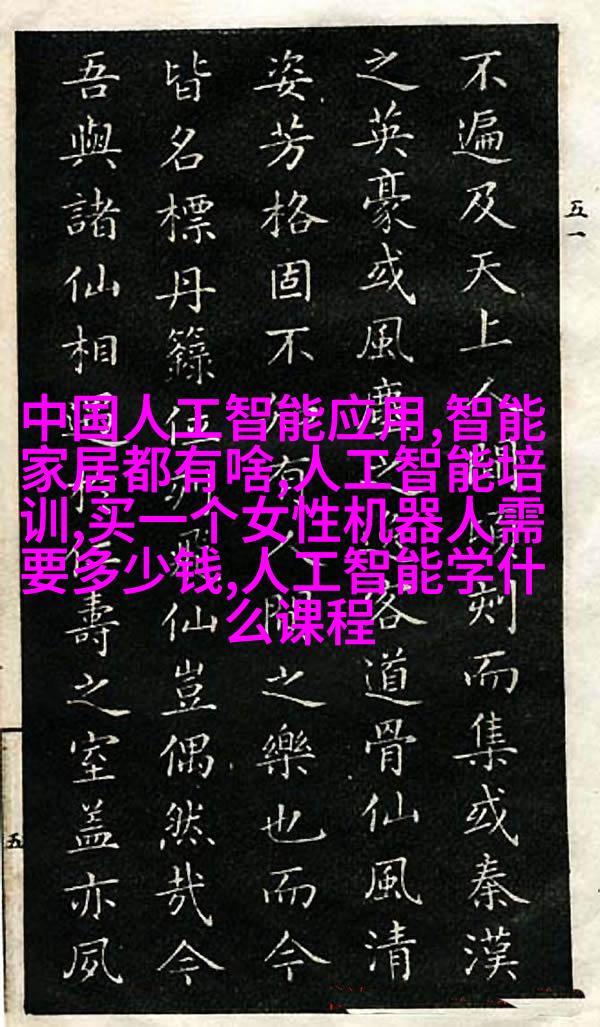 五一
不遍及天上人間頃刻而集或秦漢
之英豪或風塵之客道骨仙風清
姿芳格固不有人間之樂也而今
皆名標丹籙位列飛仙豈偶然哉今
吾與諸仙相遇壽之室蓋亦夙
五
中国人工智能应用,智能
家居都有啥,人工智能培
训,买一个女性机器人需
要多少钱,人工智能学什
么课程